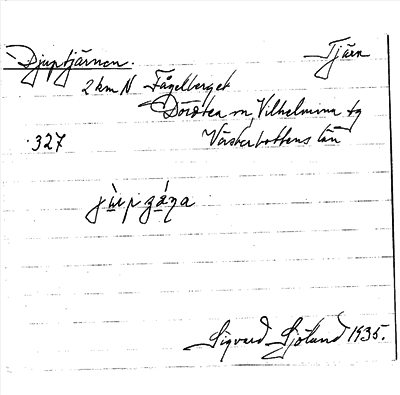 Djuptjärnen. Tjärn
2 km N Fågelberget
Dorotea sn, Vilhelmina tg
327 Västerbottens län
Sigvard Sjölund 1935.